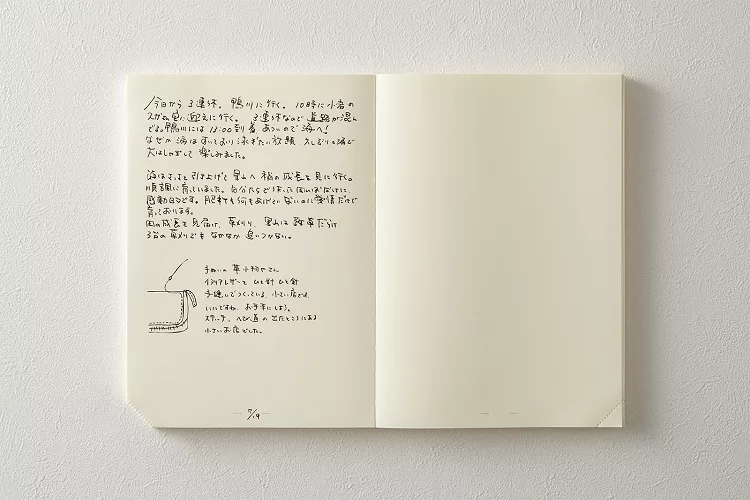 今日から3連休。鴨川に行く。10時に小岩の
スガさん宅に迎えに行く。3連休なので道路が混ん
でる。鴨川には13:00到着 あついので海へ!
なぜか海はすいており泳ぎたい放題 久しぶりの海で
大はしゃぎして楽しみました。
海はさっさと引き上げて里山へ 稲の成長を見に行く。
順調に育っていました。自分たちで作った田んぼだけに
感動的です。肥料も何もあげていないのに愛情だけで
育っております。
田の成長を見届け、草刈り、里山は雑草だらけ
3台の草刈りでもなかなか追いつかない。
手ぬいの革小物やさん
イタリアレザーを ひと針 ひと針
手縫いでつくっている、小さい店です。
いいですね、お手本にしよう。
ステッチ。へび道の出たところにある
小さいお店でした。
7/19